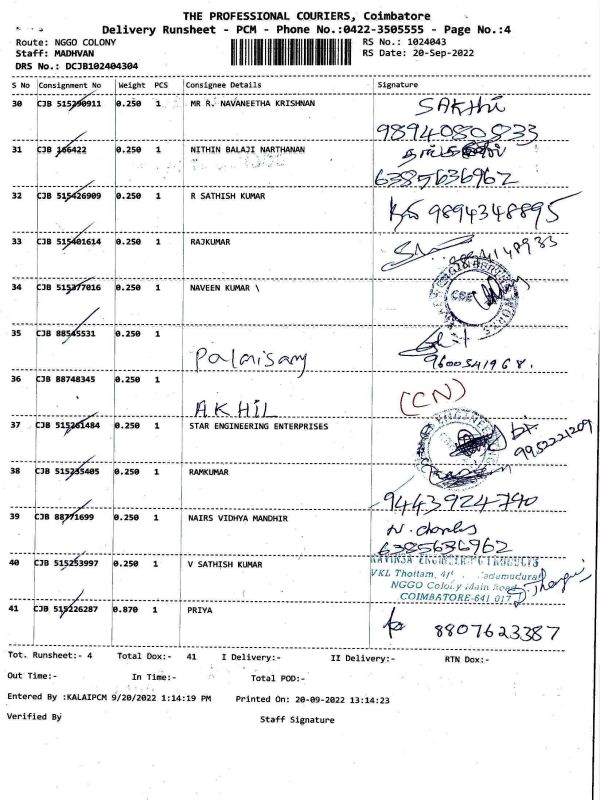 THE PROFESSIONAL COURIERS, Coimbatore
Delivery Runsheet - PCM - Phone No.:0422-3505555 - Page No.:4
Route: NGGO COLONY
RS No.: 1024043
Staff: MADHVAN
RS Date: 20-Sep-2022
DRS No.: DCJB102404304
S No Consignment No Weight PCS Consignee Details Signature
30 CJB 515290911 0.250 1 MR R. NAVANEETHA KRISHNAN SAKTHI
9894080833
31 CJB 166422 0.250 1 NITHIN BALAJI NARTHANAN
6385636962
32 CJB 515426909 0.250 1 R SATHISH KUMAR 9894348895
33 CJB 515401614 0.250 1 RAJKUMAR
34 CJB 515377016 0.250 1 NAVEEN KUMAR \
35 CJB 88545531 0.250 1
Palanisamy 9600541968.
36 CJB 88748345 0.250 1 (CN)
AKHIL
37 CJB 515261484 0.250 1 STAR ENGINEERING ENTERPRISES
9952221209
38 CJB 515235405 0.250 1 RAMKUMAR
9443924790
39 CJB 88771699 0.250 1 NAIRS VIDHYA MANDHIR
6385636962
40 CJB 515253997 0.250 1 V SATHISH KUMAR
VKL Thottam,
NGGO Colony Main Road
COIMBATORE-641 017
41 CJB 515226287 0.870 1 PRIYA
8807623387
Tot. Runsheet:- 4 Total Dox:- 41 I Delivery:- II Delivery:- RTN Dox:-
Out Time:- In Time:- Total POD:-
Entered By :KALAIPCM 9/20/2022 1:14:19 PM Printed On: 20-09-2022 13:14:23
Verified By Staff Signature